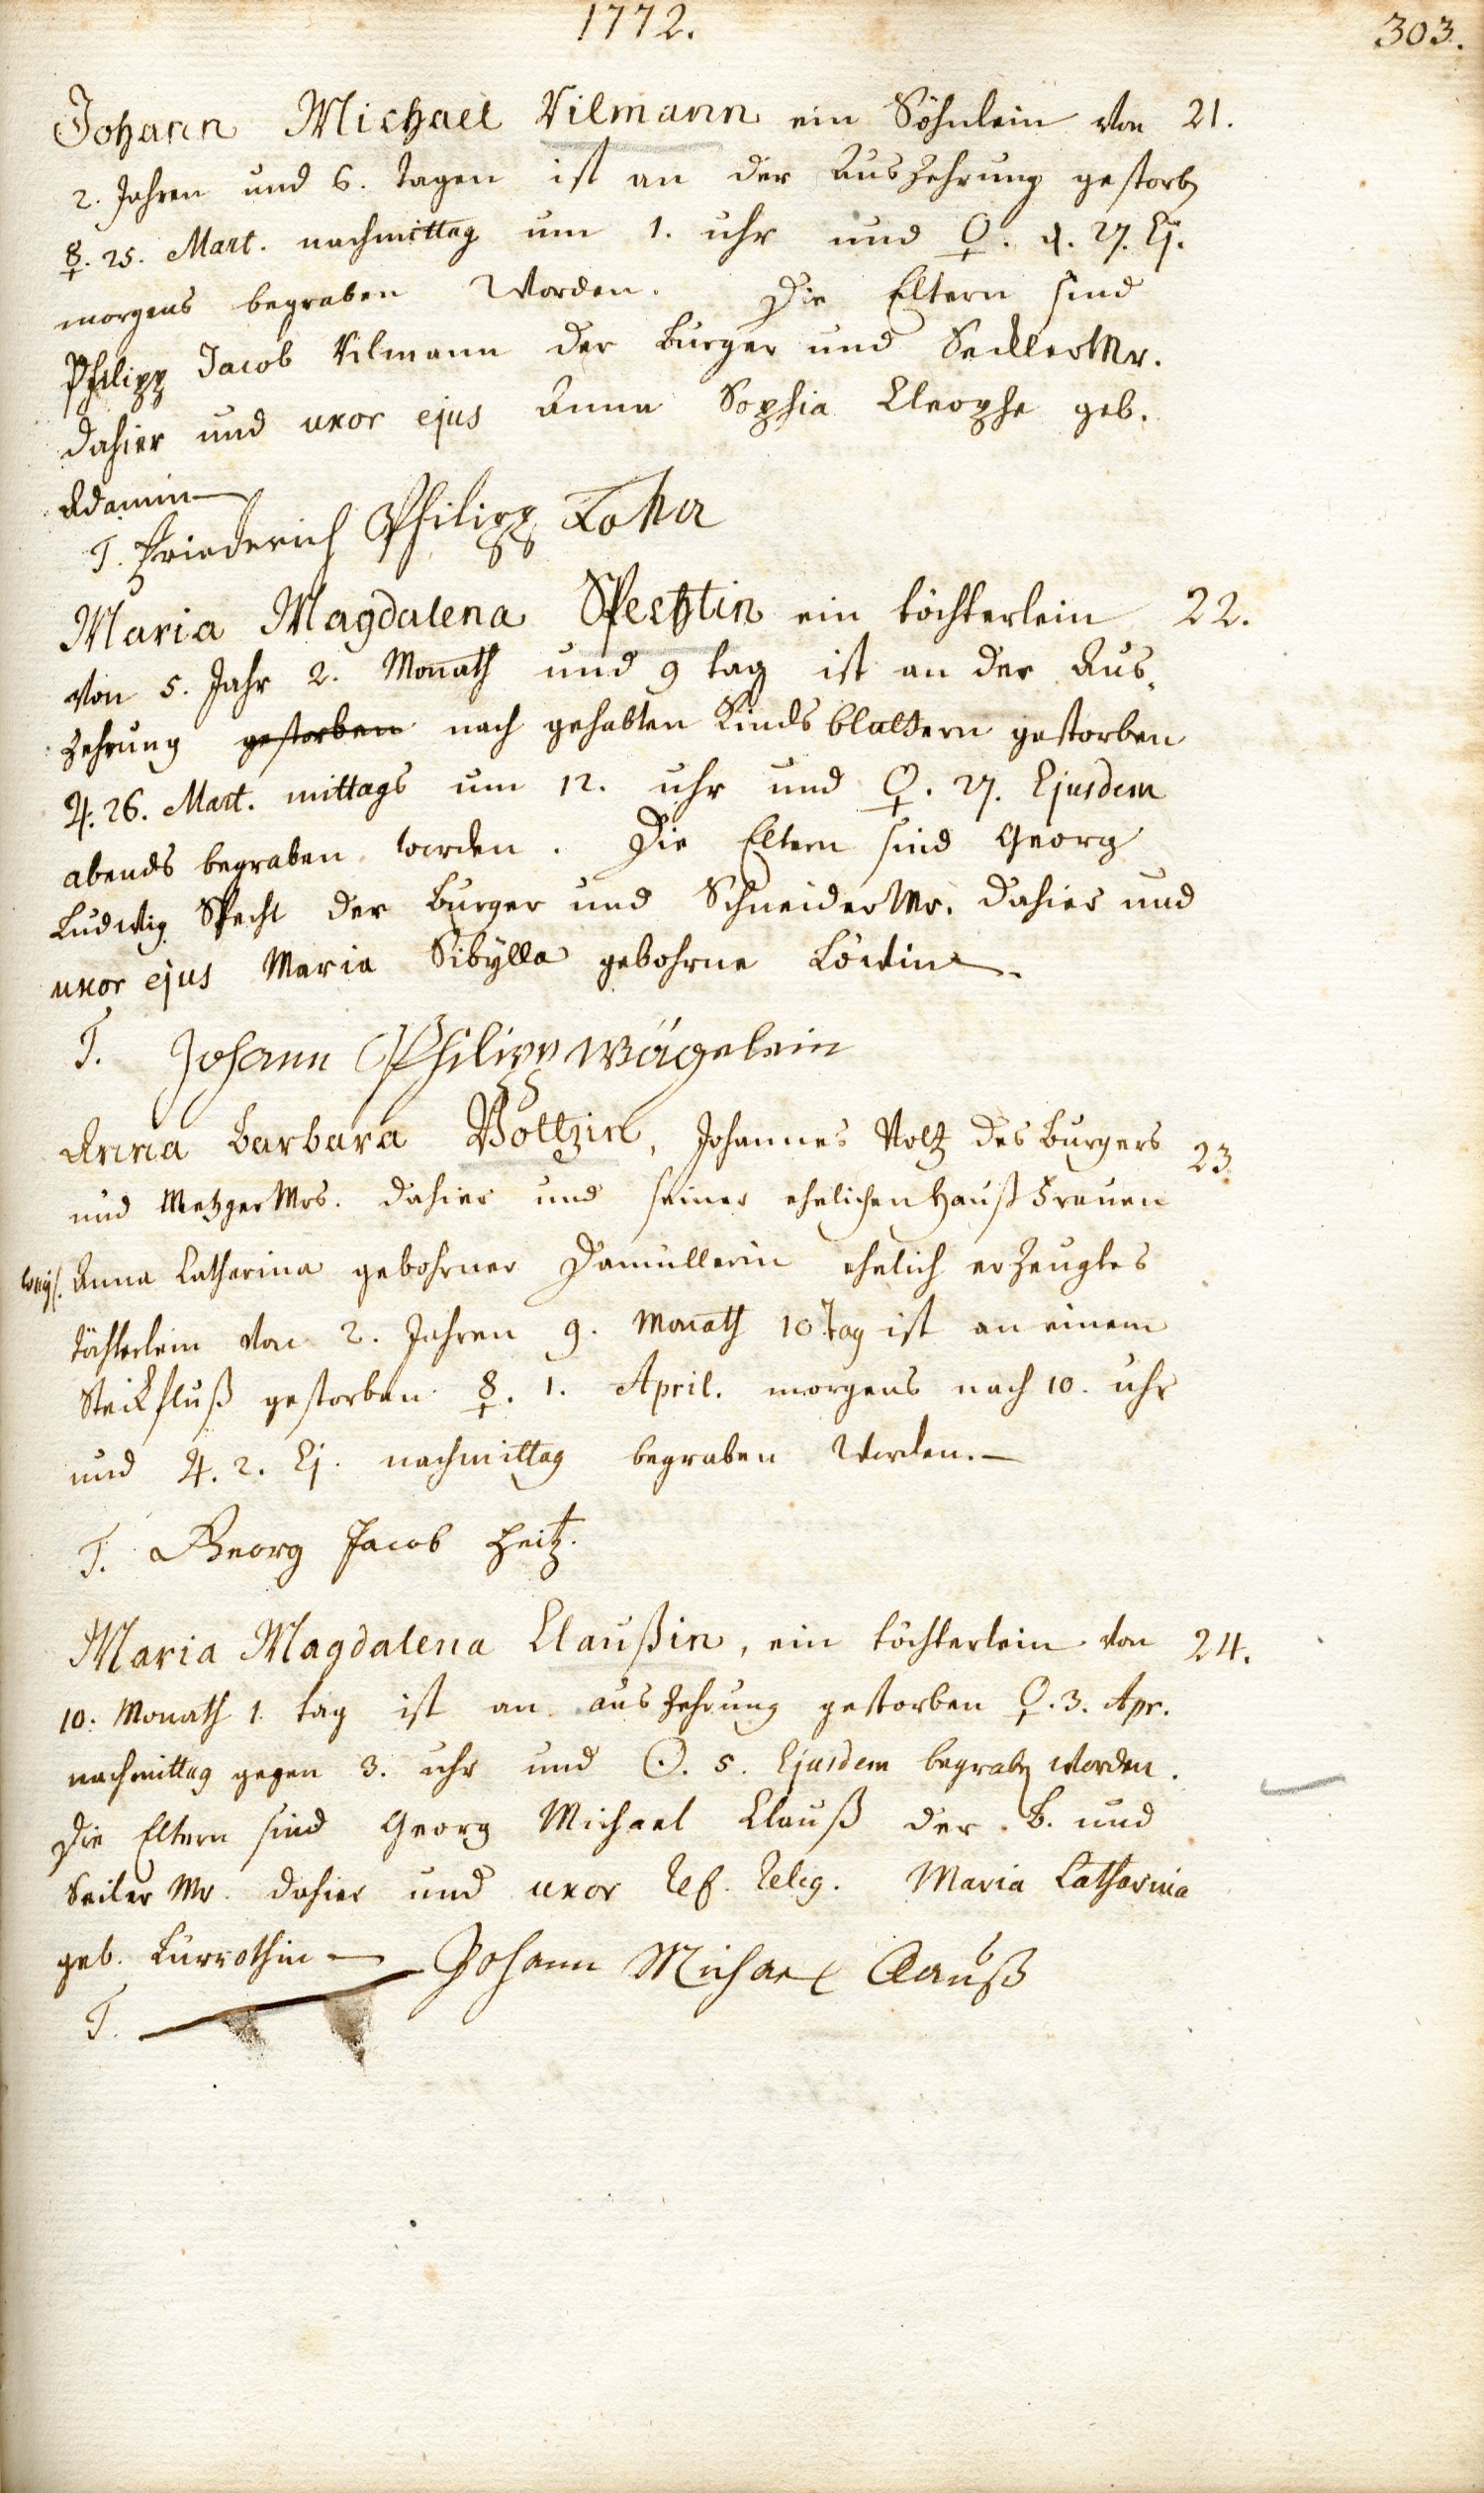 1772.
303.
Johann Michael Vilmann ein Söhnlein von 21.
2. Jahren und 6. tagen ist an der Auszehrung gestorb
☿. 25. Mart. nachmittag um 1. uhr und ♀. d. 27. Ej.
morgens begraben worden. Die Eltern sind
Philipp Jacob Vilmann der burger und SecklerMr.
dahier und uxor ejus Anna Sophia Cleophe geb.
Adamin
T. Friederich Philipp
Maria Magdalena Spechtin ein töchterlein 22.
von 5. Jahr 2. Monath und 9 tag ist an der Aus-
zehrung gestorben nach gehabten Kindsblattern gestorben
♃. 26. Mart. mittags um 12. uhr und ♀. 27. Ejusdem
abends begraben worden. Die Eltern sind Georg
Ludwig Specht der burger und SchneiderMr. dahier und
uxor ejus Maria Sibÿlla gebohrne Löwin
T. Johann Philipp Wägelein
Anna Barbara Voltzin, Johannes Voltz des burgers 23.
und MetzgerMrs. dahier und seiner ehelichen Haußfrauen
weÿl. Anna Catharina gebohrner Damüllerin ehelich erzeugtes
töchterlein von 2. Jahren 9. Monath 10 tag ist an einem
Steickfluß gestorben ☿. 1. April. morgens nach 10. uhr
und ♃. 2. Ej. nachmittag begraben worden.
T. Georg Jacob Heitz.
Maria Magdalena Claußin, ein töchterlein von 24.
10. Monath 1. tag ist an auszehrung gestorben ♀. 3. Apr.
nachmittag gegen 3. uhr und ☉. 5. Ejusdem begrab worden.
Die Eltern sind Georg Michael Clauß der B. und
Seiler Mr. dahier und uxor Ref. Relig. Maria Catharina
geb. Kurrothin Johann Michael Clauß
T.